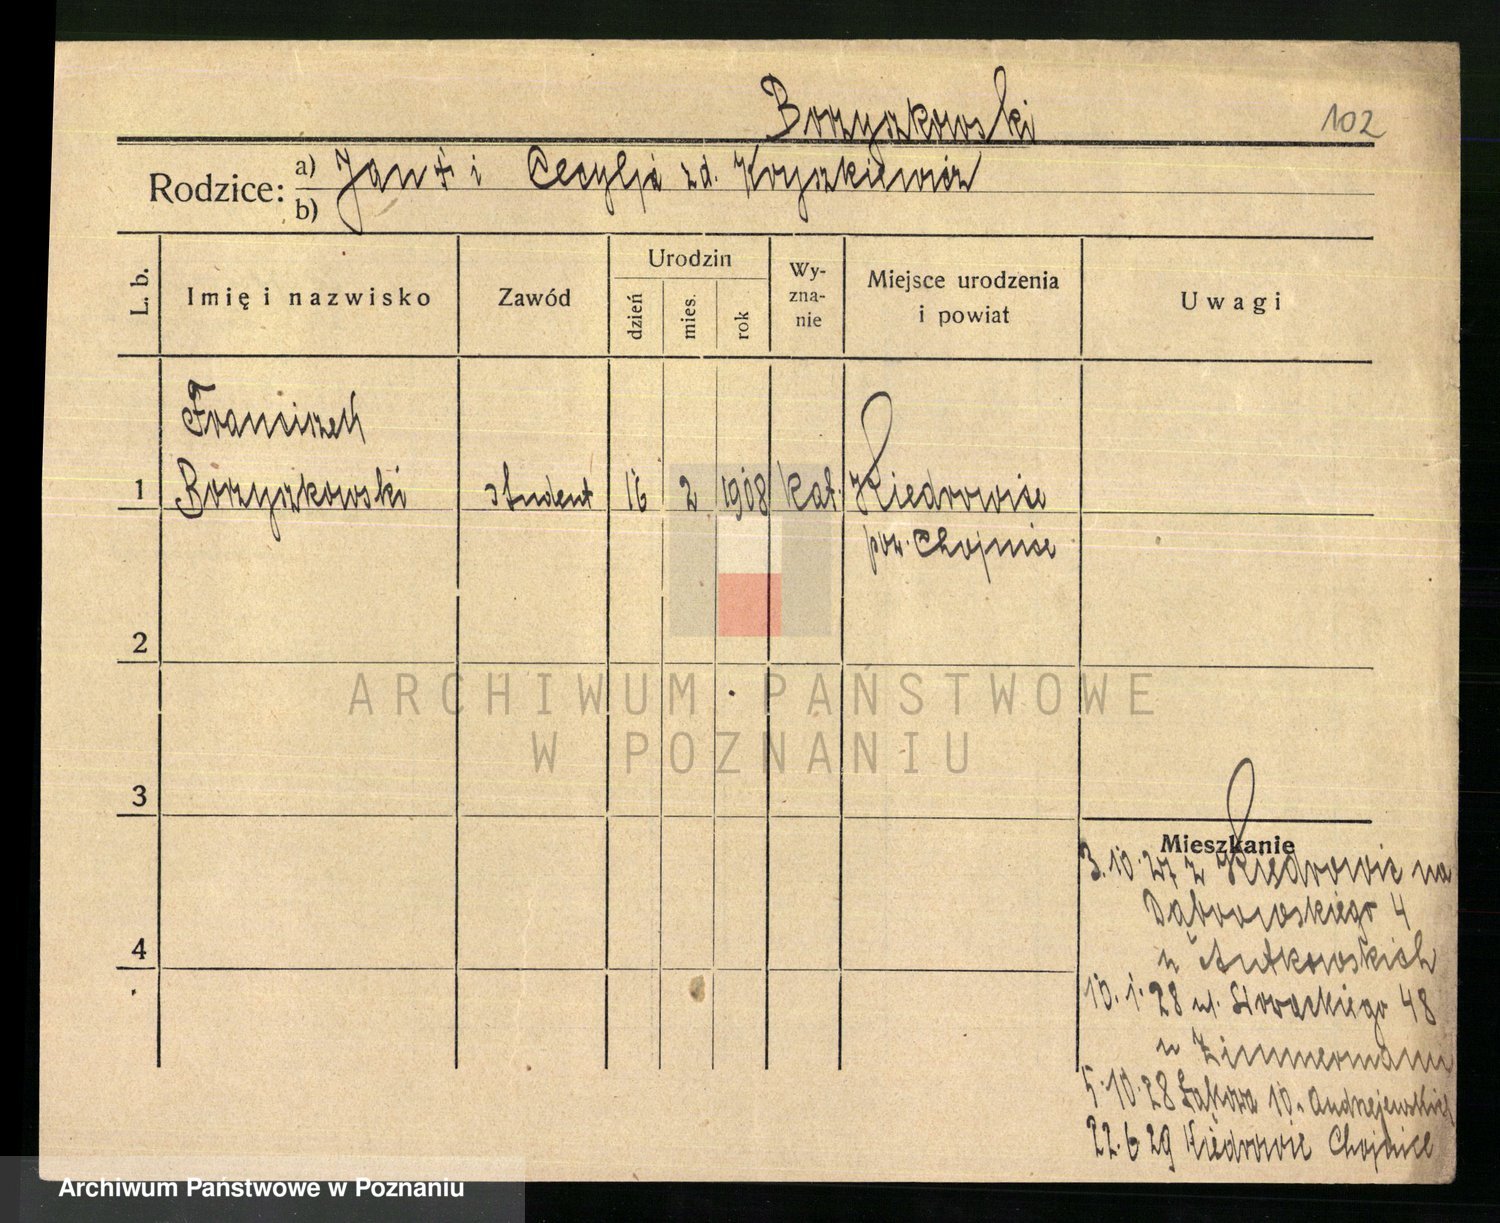 Borzyszkowski
102
Rodzice: a) Jan + i Cecylja zd.
b)
L. b.
Imię i nazwisko
Zawód
Urodzin
dzień
mies.
rok
Wy-
zna-
nie
Miejsce urodzenia
i powiat
Uwagi
Franciszek
1 Borzyszkowski student 16 2 1908 kat. Kiedrowice
pow. Chojnice
2
3
4
ARCHIWUM PAŃSTWOWE
W POZNANIU
Mieszkanie
3.10.27 z Kiedrowic na
Dąbrowskiego 4
u
10.1.28 ul. Słowackiego 48
u Zimmermann
5.10.28 Łąkowa 10. Andrzejewskich
22.6.29 Kiedrowic Chojnice
Archiwum Państwowe w Poznaniu